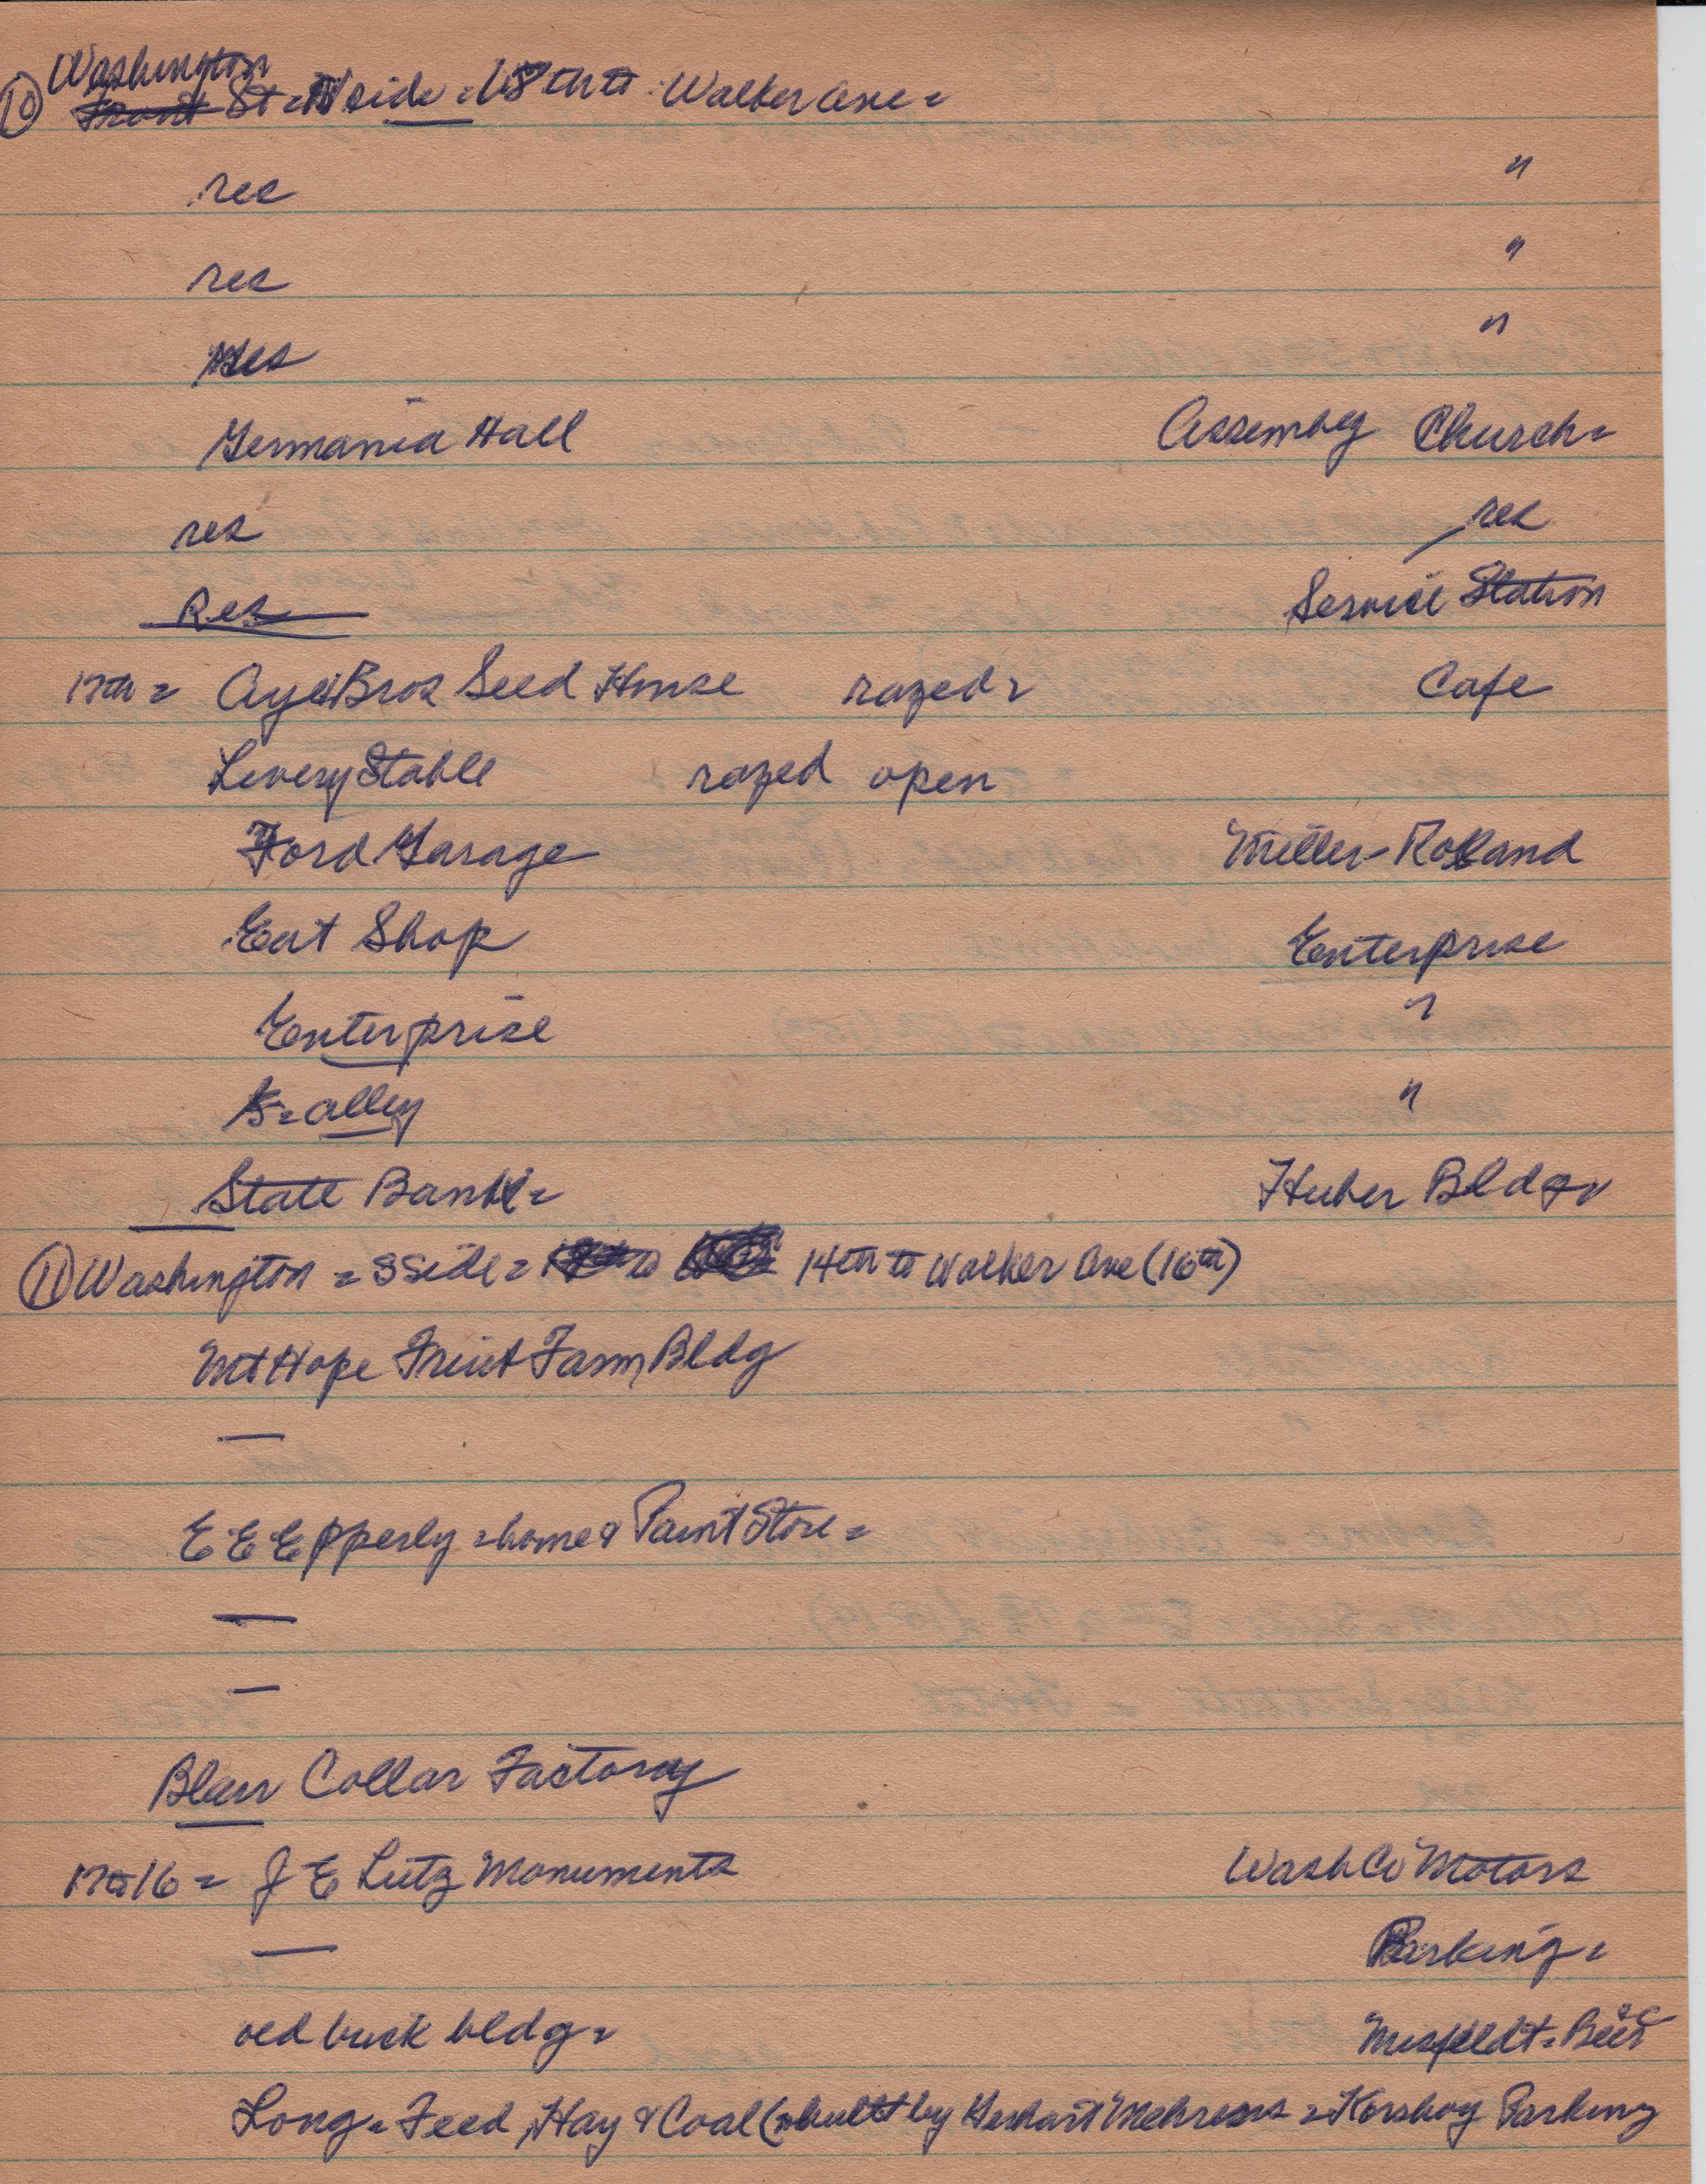 (10) Washington
Front St = N side = 18th to Walker ave =
res "
res "
res "
Germania Hall Assembly Church =
res res
Res Service Station
17th = Aye Bros Seed House razed = Cafe
Livery Stable razed open
Ford Garage Miller-Rolland
Eat Shop Enterprise
Enterprise "
alley "
State Bank = Huber Bldg
(11) Washington = S side = 14th to Walker Ave (16th)
Mt Hope Fruit Farm Bldg
—
E E Epperly = home & Paint Store =
—
—
Blair Collar Factory
17 to 16 = J E Lutz Monuments Wash Co Motors
— Parking =
old brick bldg = Misfeldt =
Long = Feed, Hay & Coal (built by Gerhart Mehrens = Korshoj Parking